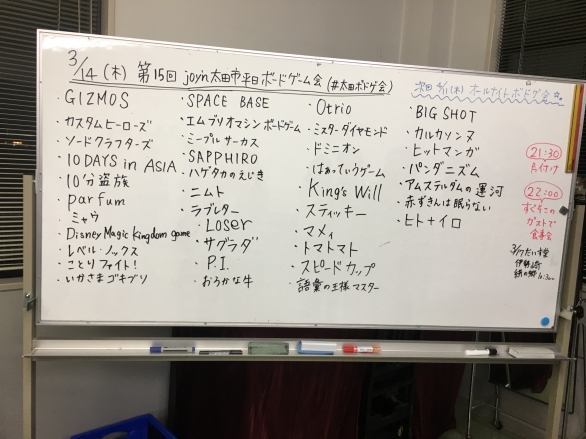 3/14(木) 第15回 joyn太田市平日ボードゲーム会(#太田ボドゲ会)
・GIZMOS
・カスタムヒーローズ
・ソードクラフターズ
・10 DAYS in ASIA
・10分盗族
・parfum
・ミャウ
・Disney Magic Kingdom game
・レベル・ノックス
・ことりファイト!
・いかさまゴキブリ
・SPACE BASE
・エムブリオマシン ボードゲーム
・ミープルサーカス
・SAPPHIRO
・ハゲタカのえじき
・ニムト
・ラブレター
・LOSER
・サグラダ
・P.I.
・おろかな牛
・Otrio
・ミスターダイヤモンド
・ドミニオン
・はぁっていうゲーム
・King's Will
・スティッキー
・マメィ
・トマトマト
・スピードカップ
・語彙の王様 マスター
・BIG SHOT
・カルカソンヌ
・ヒットマンガ
・パンダニズム
・アムステルダムの運河
・赤ずきんは眠らない
・ヒト+イロ
次回 4/11(木) オールナイトボドゲ会☆
21:30
片付け
22:00
すぐそこの
ガストで
食事会
3/17だい学堂
伊勢崎